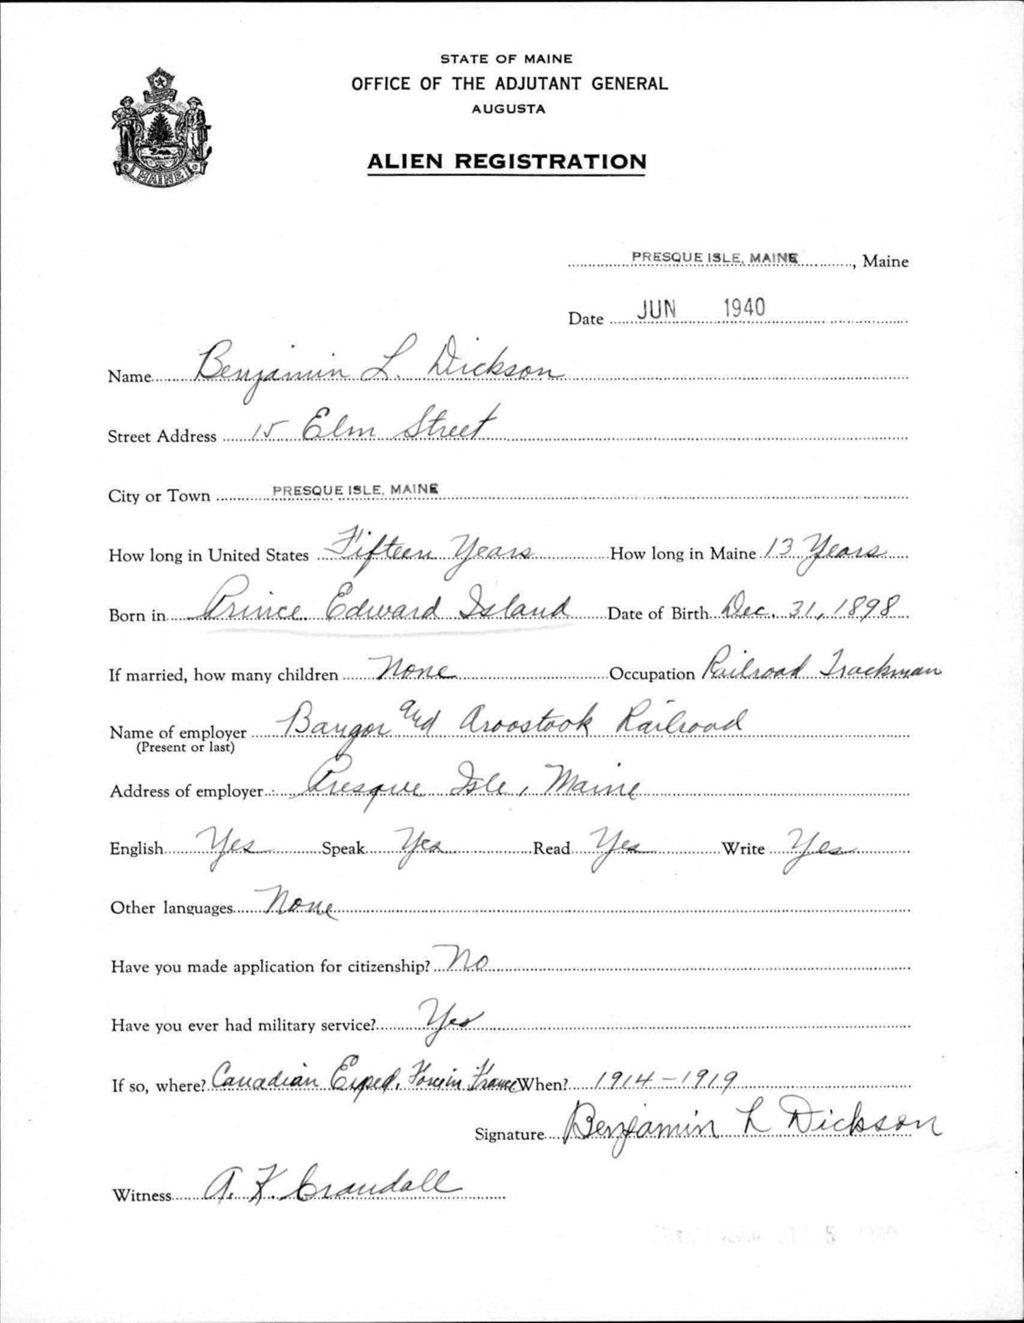 STATE OF MAINE
OFFICE OF THE ADJUTANT GENERAL
AUGUSTA
ALIEN REGISTRATION
MAINE
PRESQUE ISLE, MAINE, Maine
Date JUN 1940
Name Benjamin L. Dickson
Street Address 15 Elm Street
City or Town PRESQUE ISLE, MAINE
How long in United States Fifteen Years How long in Maine 13 Years
Born in Prince Edward Island Date of Birth Dec. 31, 1898
If married, how many children None Occupation Railroad Trackman
Name of employer Bangor and Aroostook Railroad
(Present or last)
Address of employer Presque Isle, Maine
English Yes Speak Yes Read Yes Write Yes
Other languages None
Have you made application for citizenship? No
Have you ever had military service? Yes
If so, where? Canadian Exped. Force in France When? 1914-1919
Signature Benjamin L Dickson
Witness A. K. Crandall